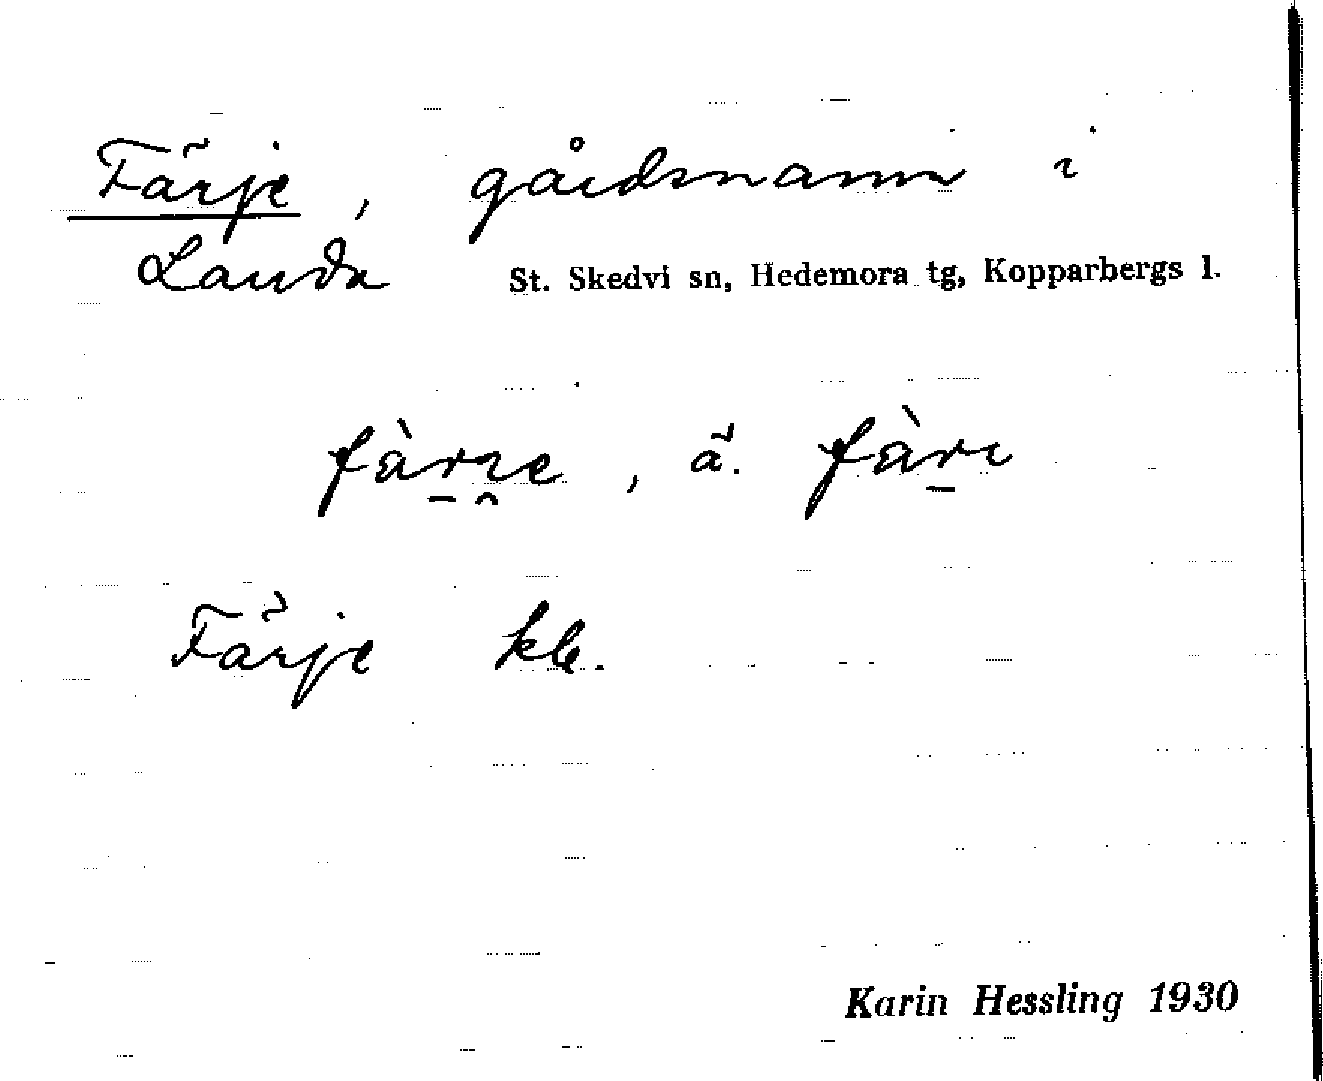 Färje, gårdsnamn i
Landa St. Skedvi sn, Hedemora tg, Kopparbergs l.
fàr̠ı̯e, ä. fàr̠ı
Färje kb.
Karin Hessling 1930